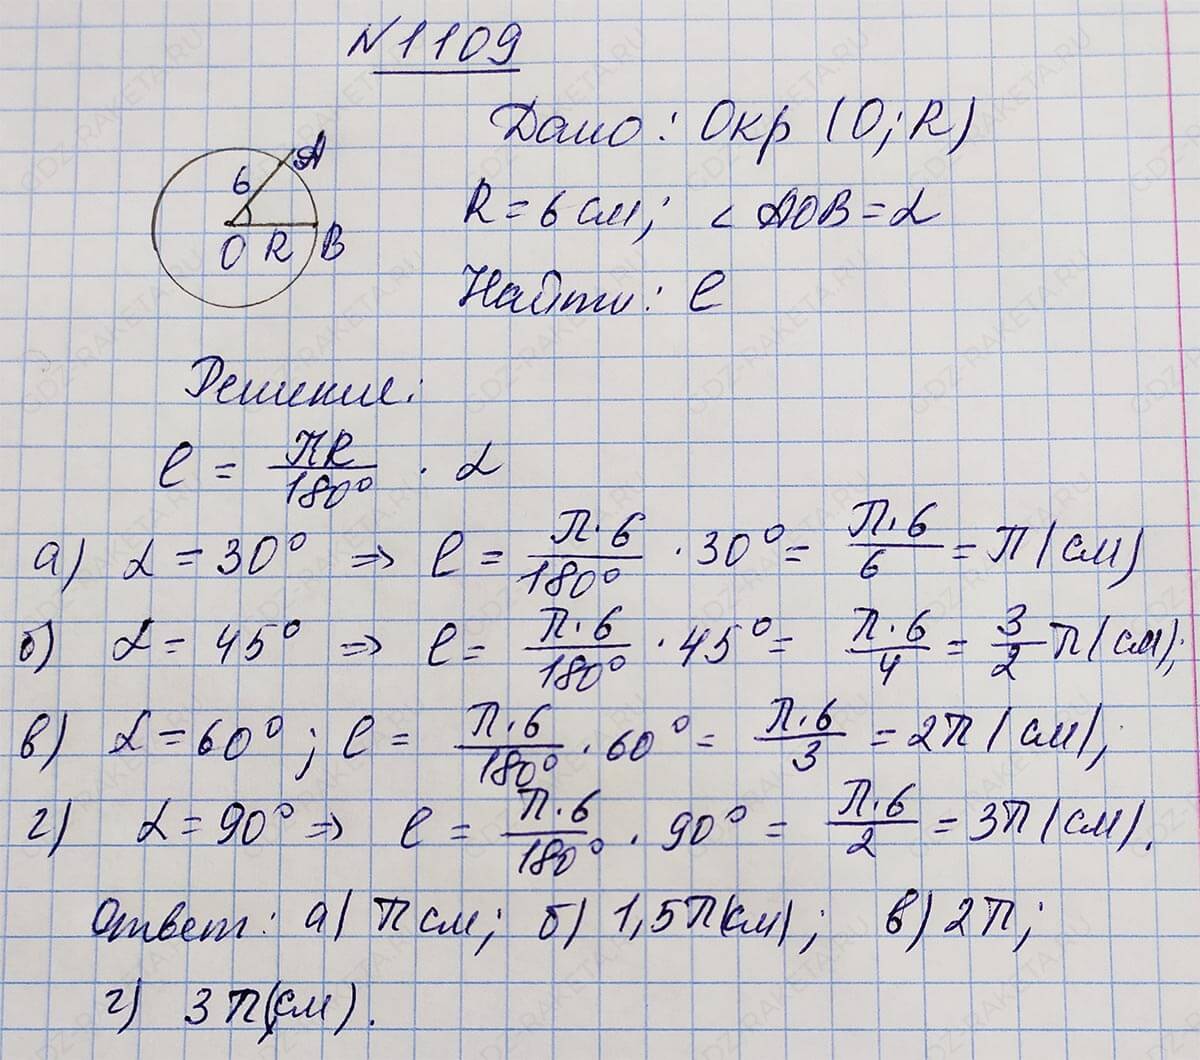 N1109
Дано: Окр (O; R)
A
6
O R B
R = 6 см; ∠ AOB = α
Найти: l
Решение:
l = πR/180° · α
а) α = 30° ⇒ l = π·6/180° · 30° = π·6/6 = π (см)
б) α = 45° ⇒ l = π·6/180° · 45° = π·6/4 = 3/2 π (см);
в) α = 60°; l = π·6/180° · 60° = π·6/3 = 2π (см);
г) α = 90° ⇒ l = π·6/180° · 90° = π·6/2 = 3π (см).
Ответ: а) π см; б) 1,5π(см); в) 2π;
г) 3π(см).
GDZ-RAKETA.RU